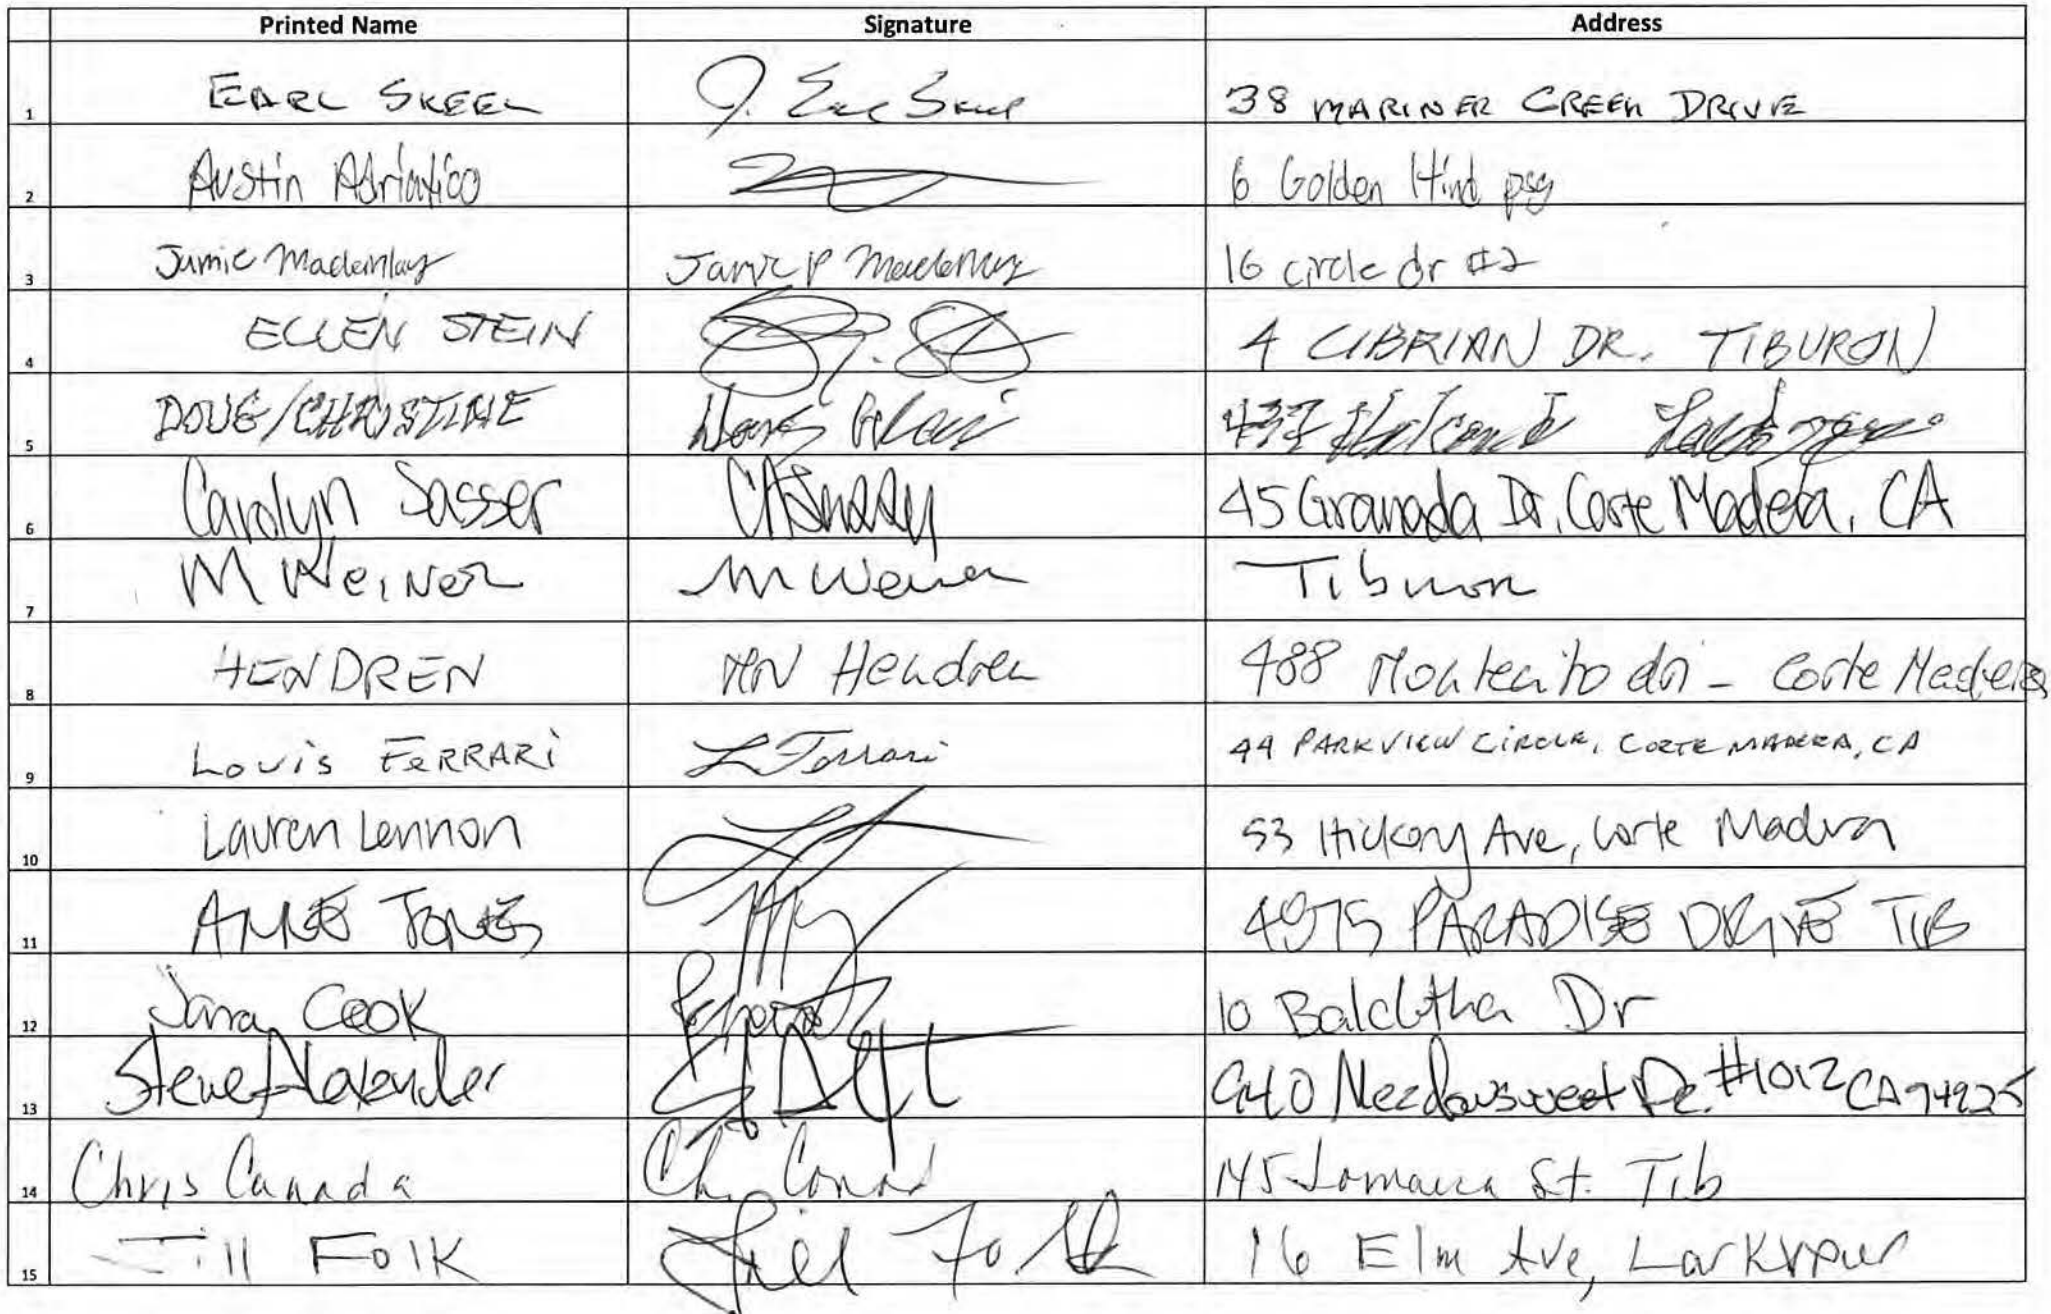 Printed Name Signature Address
1 EARL SKEEL J. Earl Skeel 38 MARINER GREEN DRIVE
2 Austin Adriatico 6 Golden Hind psg
3 Jamie 16 circle dr #2
4 ELLEN STEIN 4 CIBRIAN DR. TIBURON
5 DOUG/CHRISTINE
6 Carolyn Sasser 45 Granada Dr, Corte Madera, CA
7 M WeiNer M Weiner Tiburon
8 HENDREN MN Hendren 488 Montecito dri - Corte Madera
9 Louis FERRARi L Ferrari 44 PARKVIEW CiRCLE, CORTE MADERA, CA
10 Lauren Lennon 53 Hickory Ave, Corte Madera
11 AMEE JONES 4975 PARADISE DRIVE TIB
12 Jana Cook 10 Balclutha Dr
13 Steve Alexander 940 Meadowsweet Dr. #1012 CA 94925
14 Chris Canada 145 Jamaica St. Tib
15 Jill Folk Jill Folk 16 Elm Ave, Larkspur